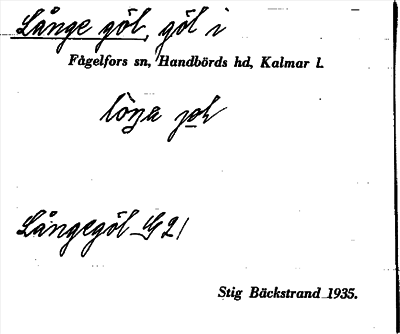 Långe göl, göl i
Fågelfors sn, Handbörds hd, Kalmar l.
Långegöl G 21
Stig Bäckstrand 1935.